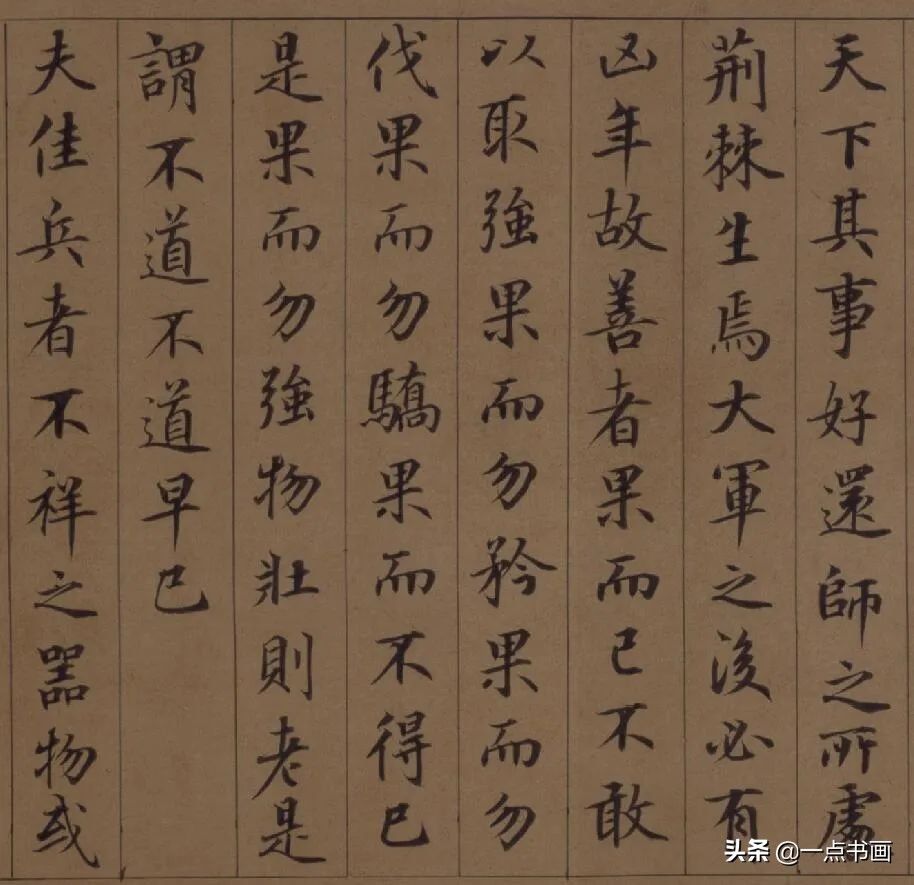 天下其事好還師之所處
荆棘生焉大軍之後必有
凶年故善者果而已不敢
以取強果而勿矜果而勿
伐果而勿驕果而不得已
是果而勿強物壯則老是
謂不道不道早已
夫佳兵者不祥之器物或
头条 @一点书画